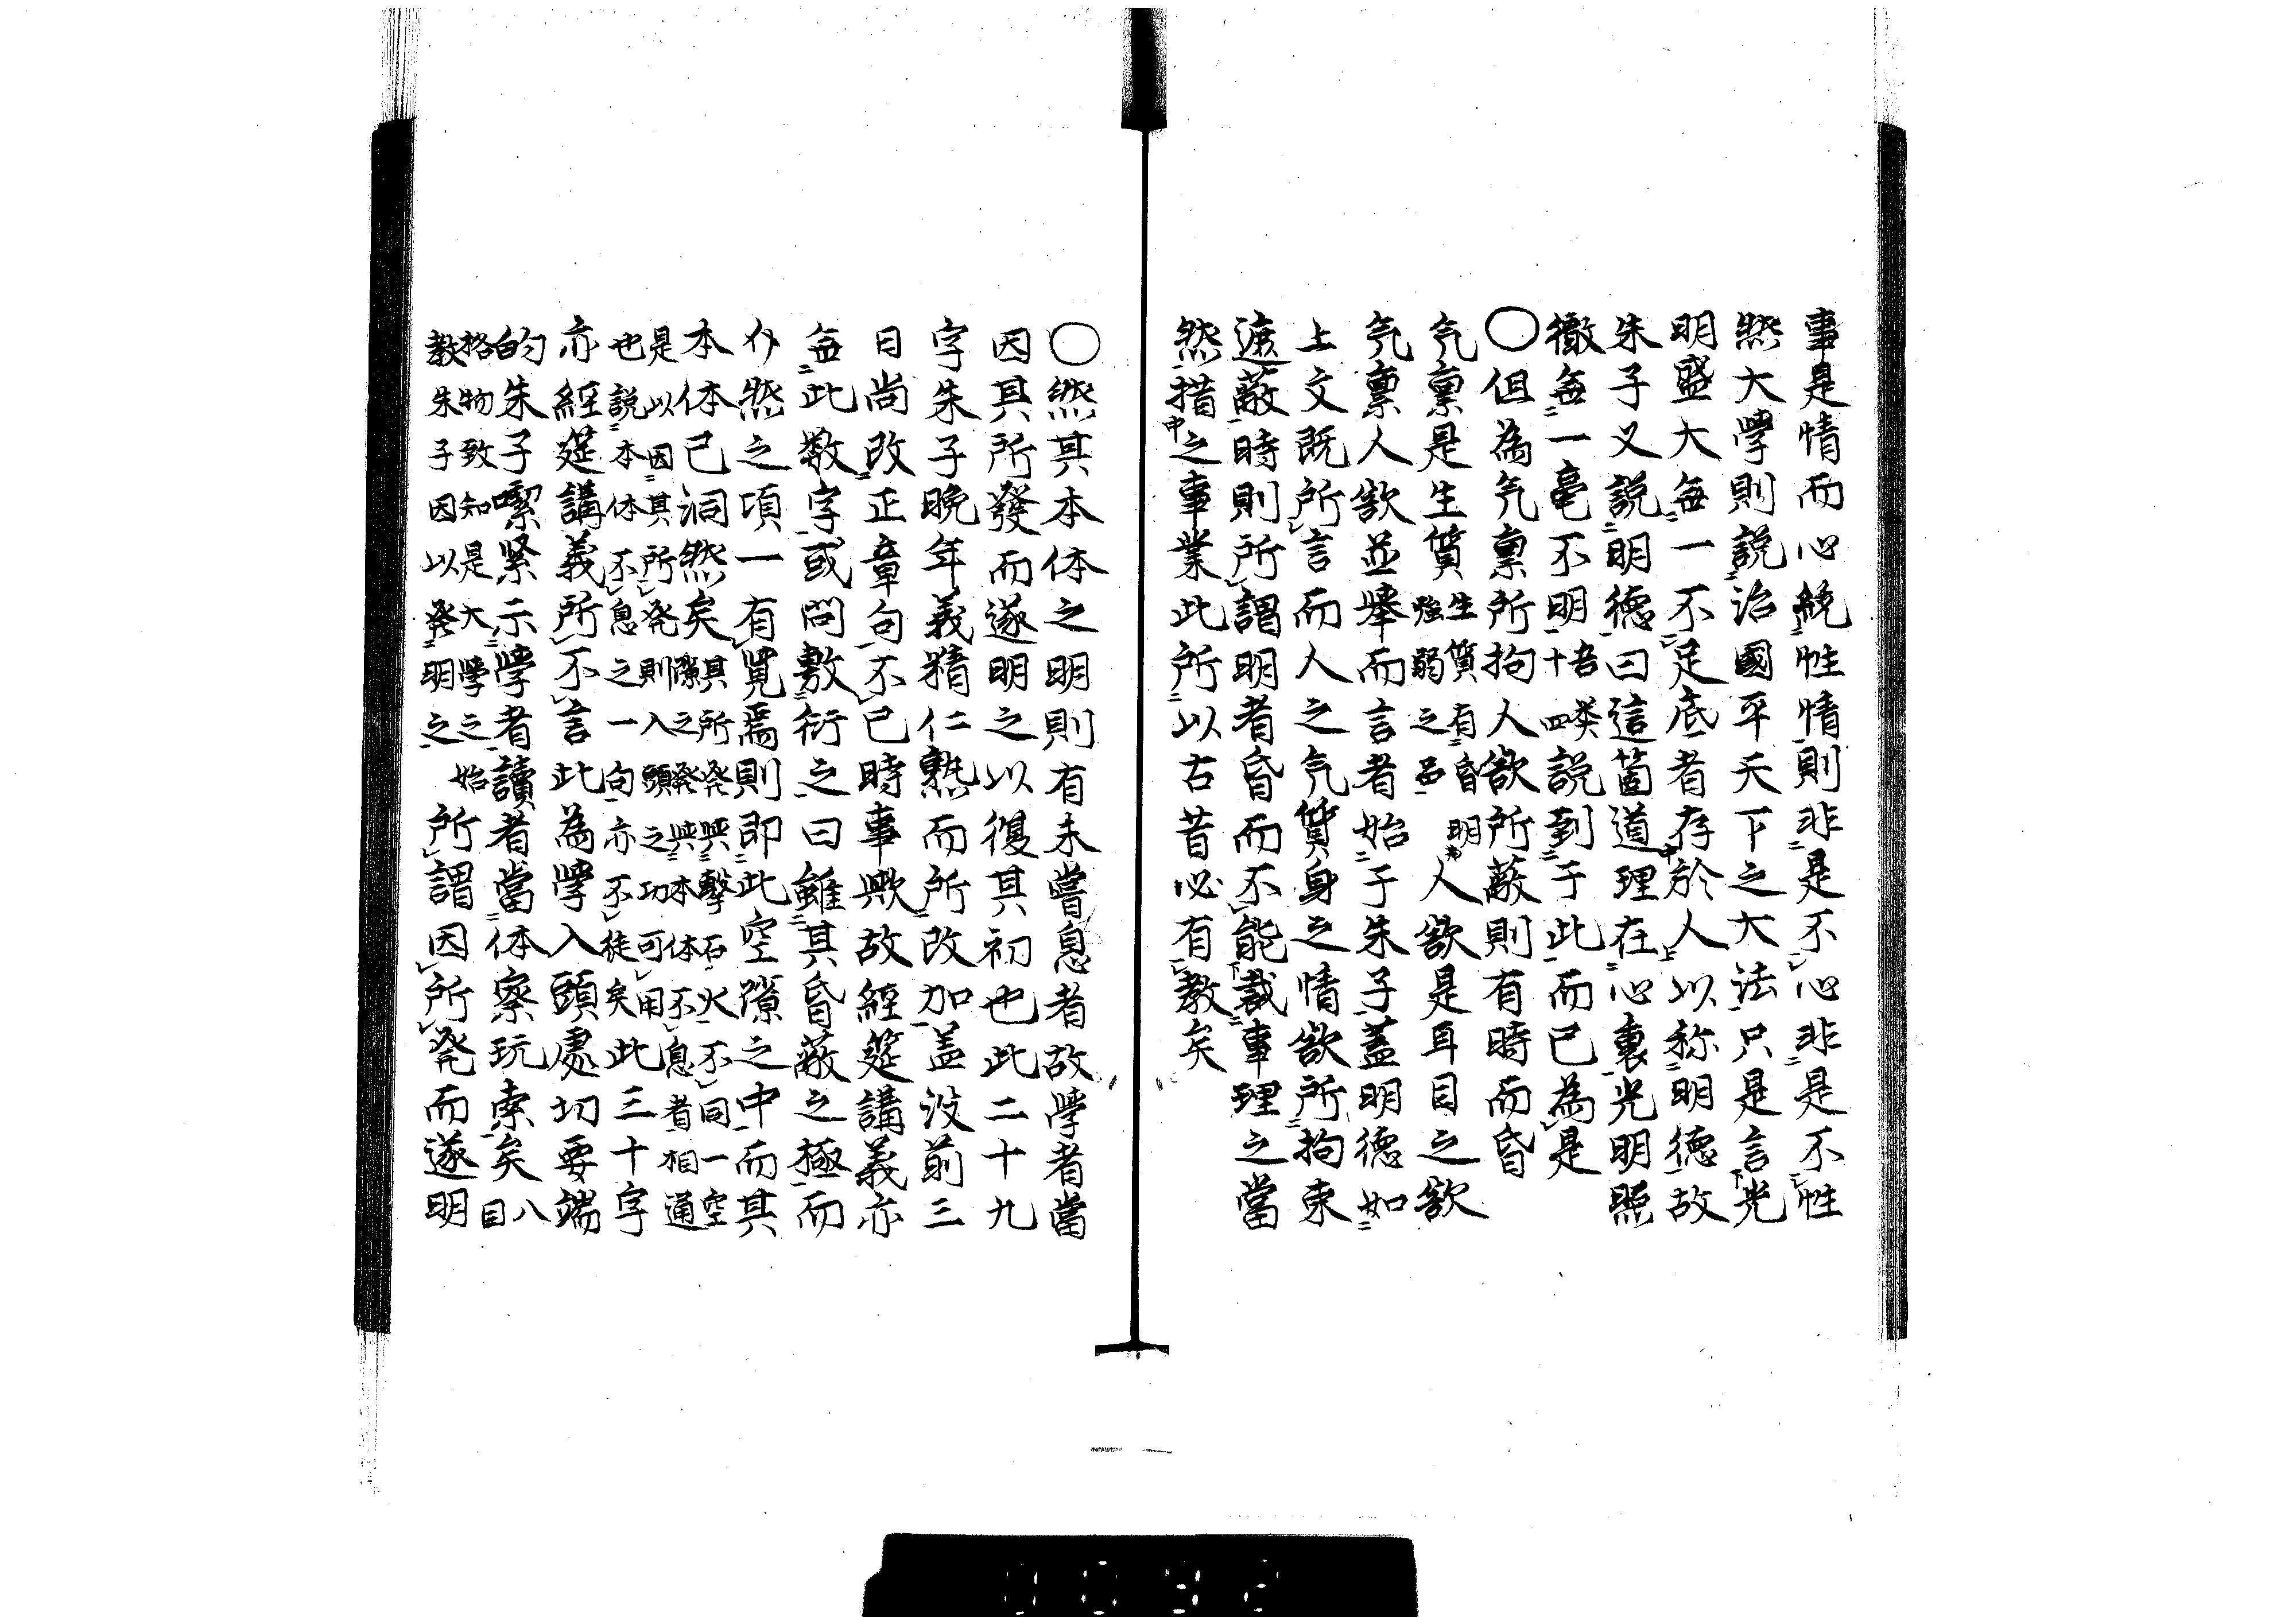 事是情而心統性情則非是不心非是不性
然大學則説治國平天下之大法只是言光
明盛大每一不足底者存於人以称明德故
朱子又説明德曰這箇道理在心裏光明照
徹每一毫不明十四吾类説到于此而已為是
〇但為気稟所拘人欲所蔽則有時而昏
気稟是生質生質有昏明強弱之品人欲是耳目之欲
気稟人欲並舉而言者始于朱子蓋明德如
上文既所言而人之気質身之情欲所拘束
遮蔽時則所謂明者昏而不能裁事理之當
然措之事業此所以古昔必有教矣
〇然其本体之明則有未嘗息者故學者當
因其所發而遂明之以復其初也此二十九
字朱子晚年義精仁熟而所改加盖没前三
日尚改正章句不已時事歟故經筵講義亦
每此数字或問敷衍之曰雖其昏蔽之極而
介然之頃一有覚焉則即此空隙之中而其
本体已洞然矣其所発與擊石火不同一空隙之発與本体不息者相通
是以因其所発則入頭之功可用
也説本体不息之一句亦不徒矣此三十字
亦經筵講義所不言此為學入頭處切要端
的朱子喫緊示學者讀者當体察玩索矣八目
格物致知是大學之始
教朱子因以発明之所謂因所発而遂明